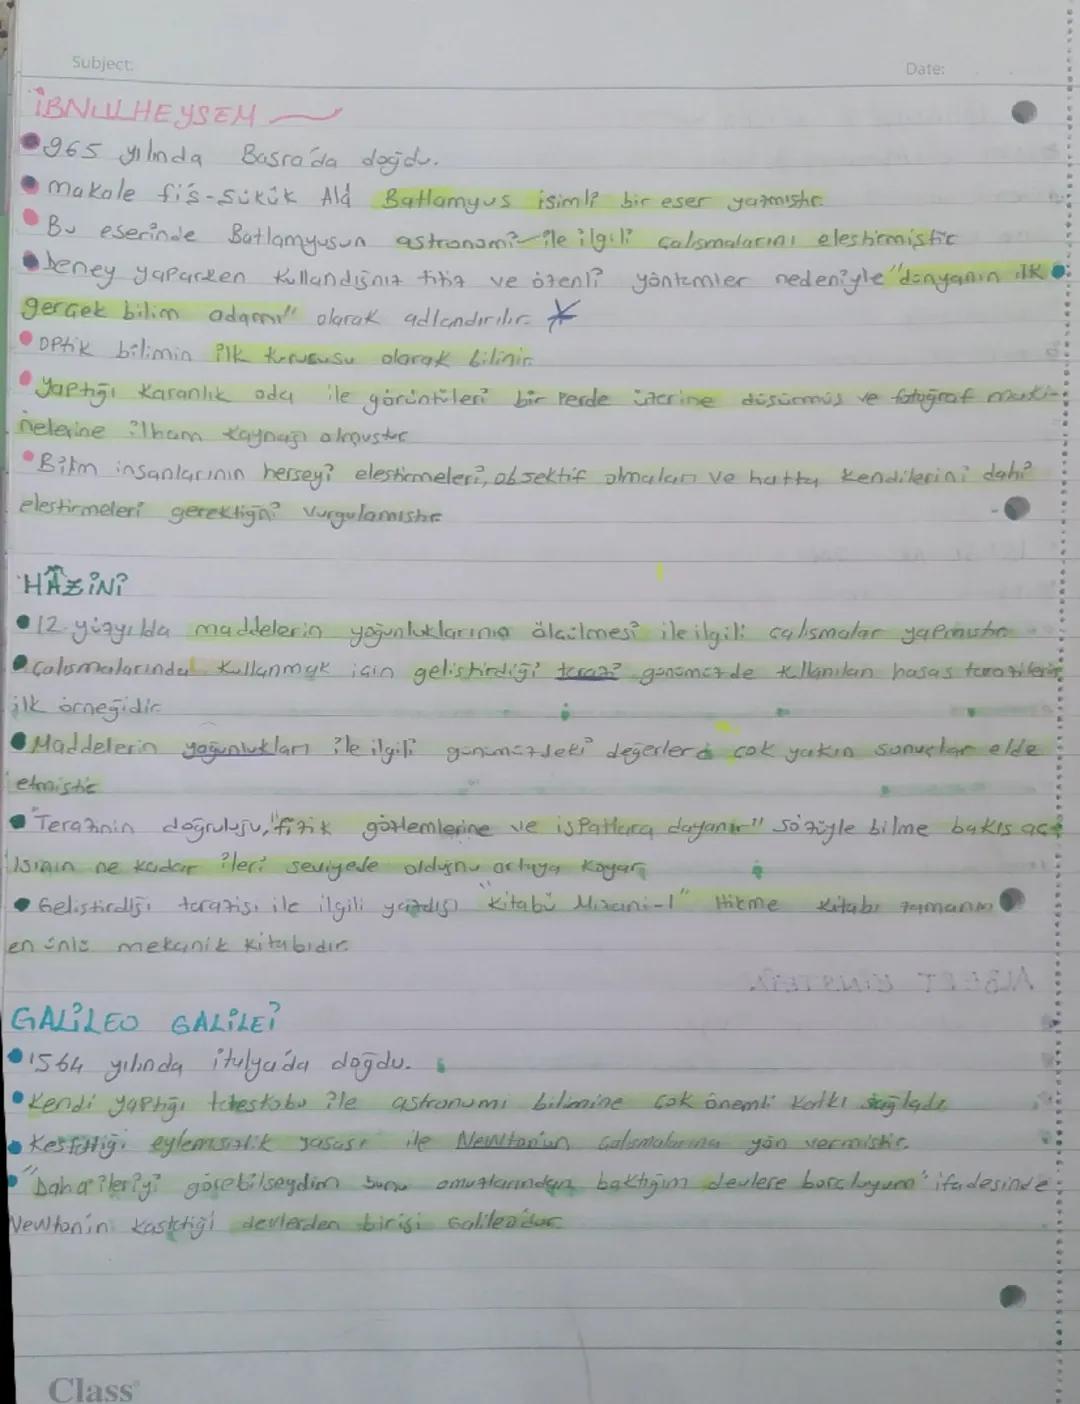 Subject: Date:
İBNULHEYSEM
965 yılında Basra'da doğdu.
Makale fiş-Sükûk Alâ Batlamyus isimli bir eser yazmıştır.
Bu eserinde Batlamyusun astronomi ile ilgili çalışmalarını eleştirmiştir
Deney yaparken kullandığınız titiz ve özenli yöntemler nedeniyle "dünyanın ilk
gerçek bilim adamı" olarak adlandırılır.
Optik bilimin ilk kurucusu olarak bilinir.
Yaptığı karanlık oda ile görüntüleri bir perde üzerine düşürmüş ve fotoğraf maki-
nelerine ilham kaynağı olmuştur
Bilim insanlarının herşeyi eleştirmeleri, objektif olmaları ve hatta kendilerini dahi
eleştirmeleri gerektiğini vurgulamıştır
HÂZİNİ
12. yüzyılda maddelerin yoğunluklarının ölçülmesi ile ilgili çalışmalar yapmıştır
Çalışmalarında kullanmak için geliştirdiği terazi günümüzde kullanılan hasas terazilerin
ilk örneğidir
Maddelerin yoğunlukları ile ilgili günümüzdeki değerlere çok yakın sonuçlar elde
etmiştir
"Terazinin doğruluğu, fizik gözlemlerine ve ispatlara dayanır" sözüyle bilme bakış aç
ısının ne kadar ileri seviyede olduğnu ortaya koyar
Geliştirdiği terazisi ile ilgili yazdığı "Kitabü Mizani-l" Hikme kitabı zamanın
en ünlü mekanik kitabıdır.
ALBERT EINSTEIN
GALİLEO GALİLEİ
1564 yılında italya'da doğdu.
Kendi yaptığı teleskobu ile astronomi bilimine çok önemli katkı sağladı
Keşfettiği eylemsizlik yasası ile Newton'un çalışmalarına yön vermiştir.
"Daha ileriyi görebilseydim bunu omuzlarından baktığım devlere borçluyum" ifadesinde
Newton'in kastettiği devlerden birisi Galileo'dur.
Class